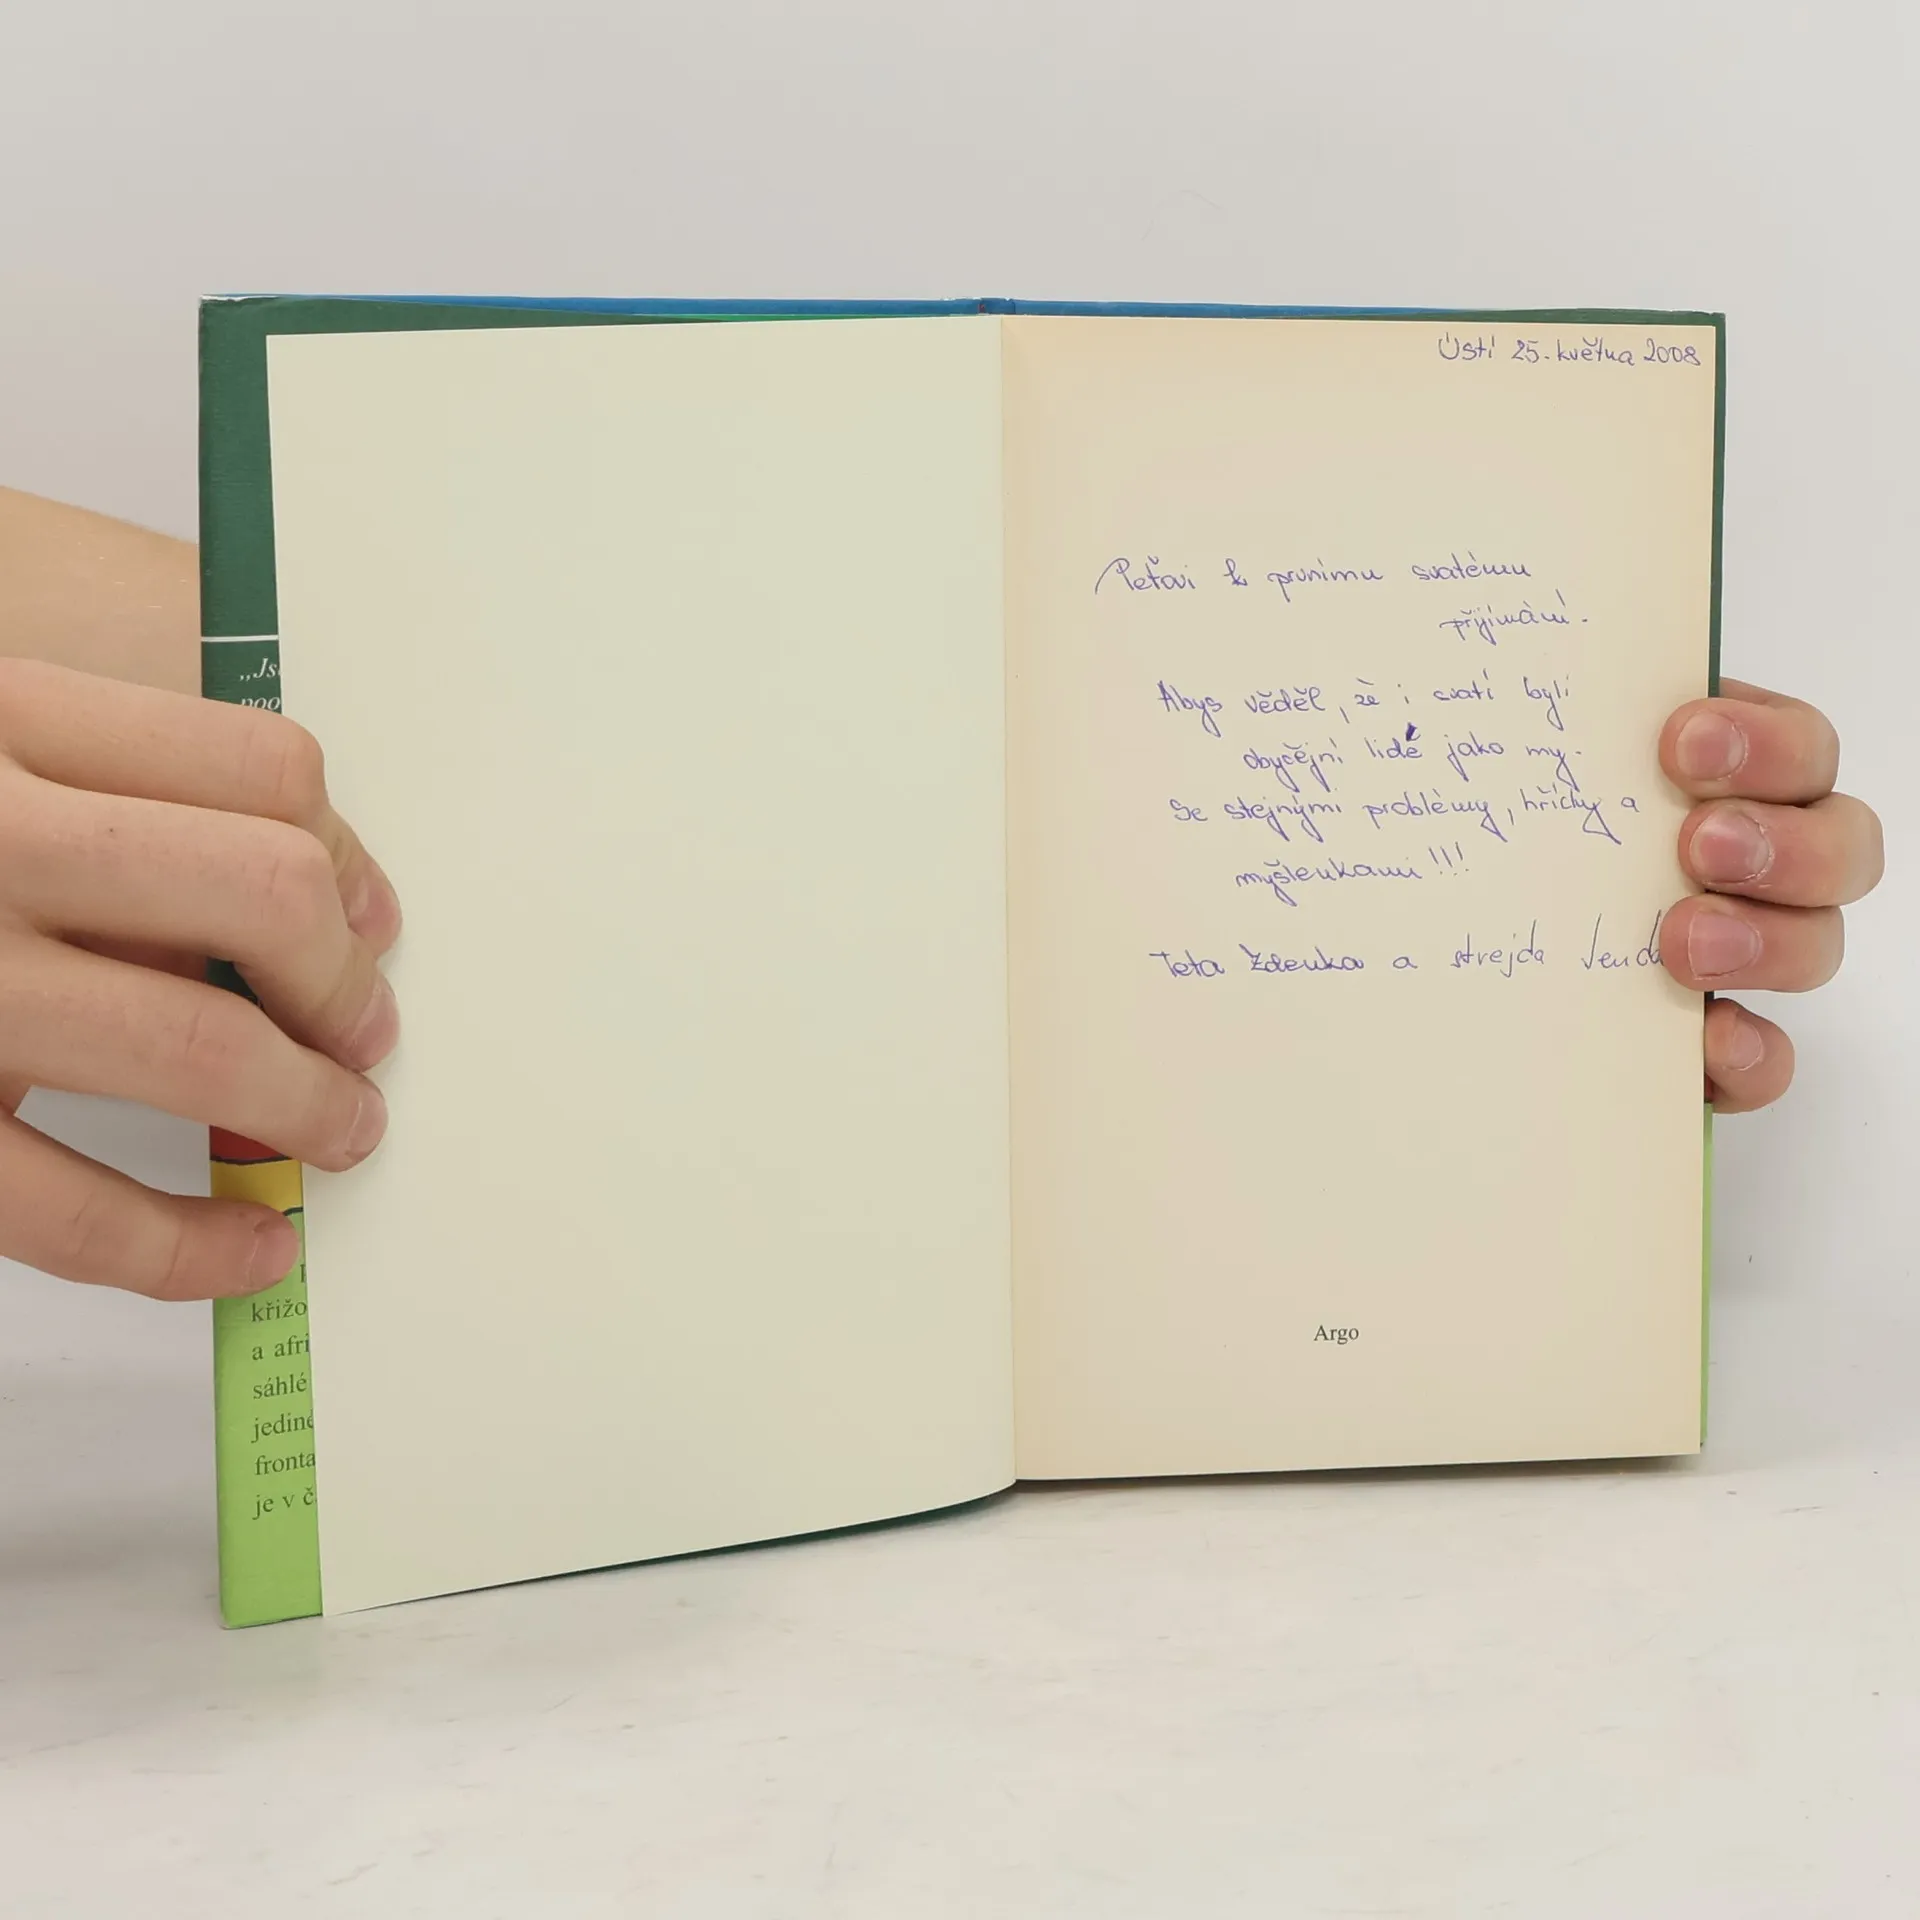 „Js
poo
křižo
a afri
sáhlé
jedine
fronta
je v č
Ústí 25. května 2008
Peťovi k prvnímu svatému
přijímání.
Abys věděl, že i svatí byli
obyčejní lidé jako my.
Se stejnými problémy, hříchy a
myšlenkami!!!
Teta Zdenka a strejda Venda
Argo